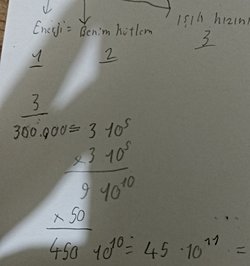 Enerji = Benim kütlem ışık hızını
1 2 3
3
300.000 = 3 10⁵
x3 10⁵
9 10¹⁰
x 50 ...
450 10¹⁰ = 45 · 10¹¹ =